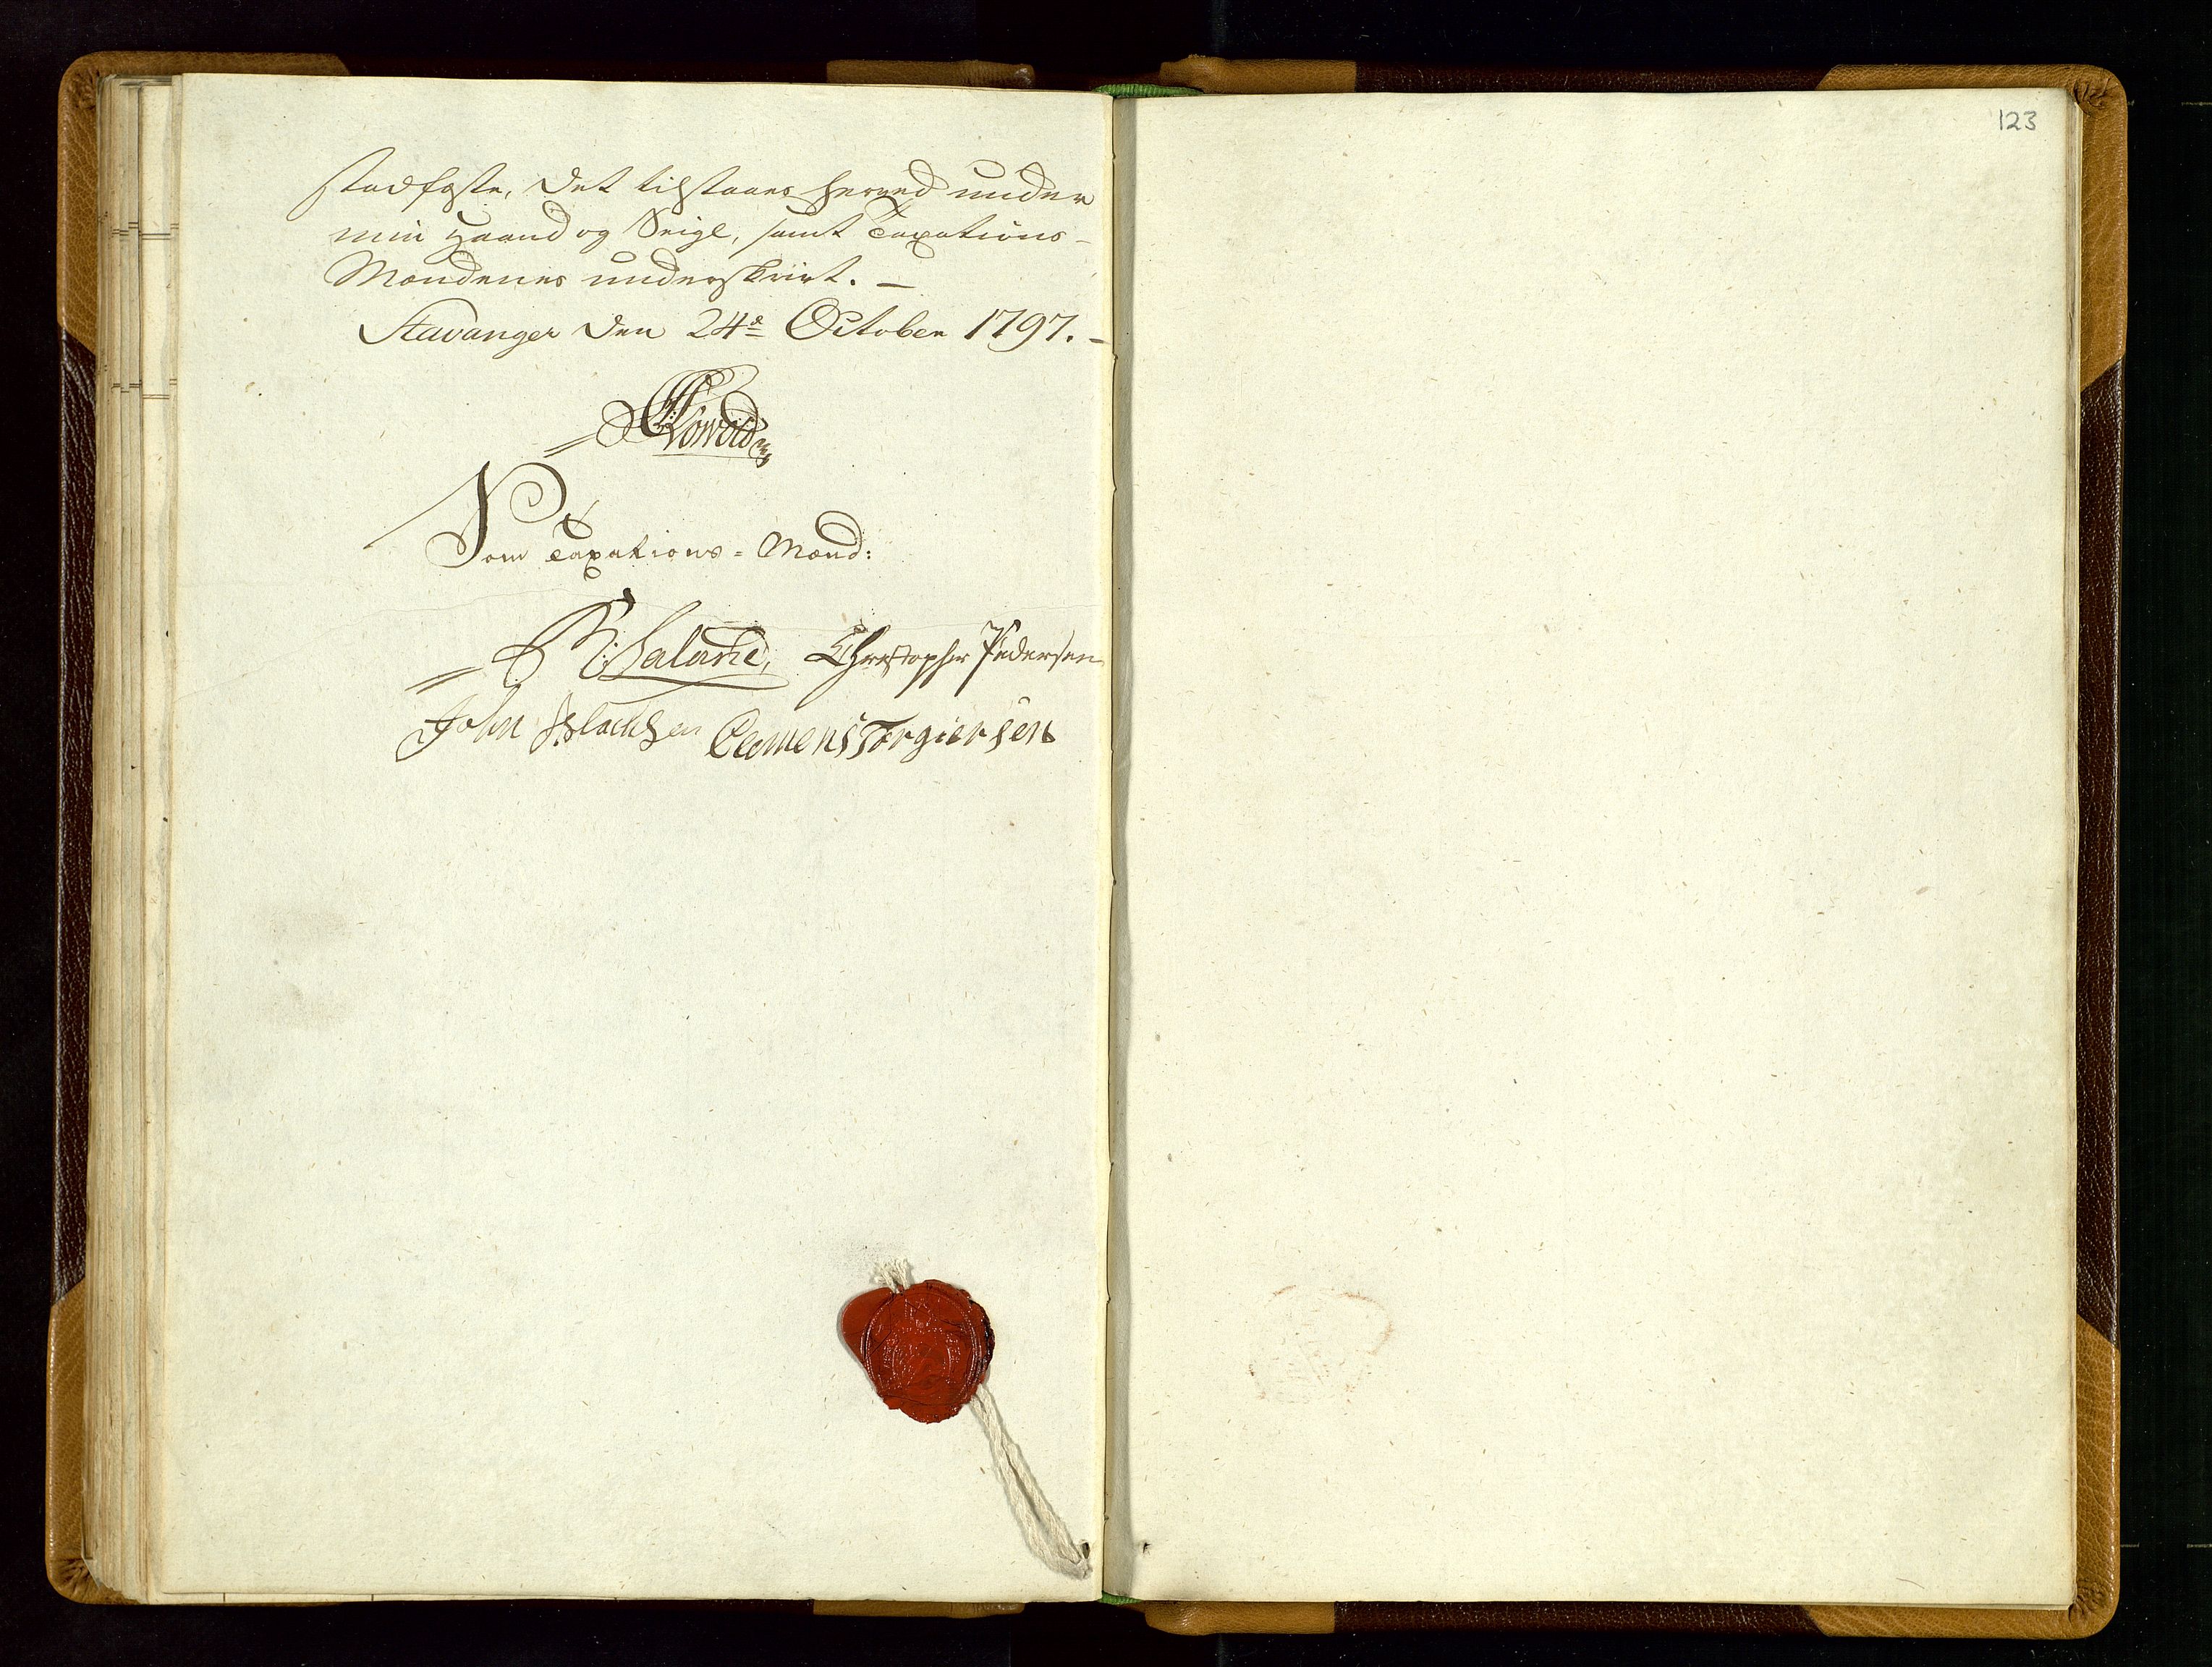 123
stadfæste, det tilstaaes herved under
min Haand og Seigl, samt Taxations-
Mændenes underskrivt. –
Stavanger den 24de October 1797. –
Som Taxations = Mænd:
Christopher Pedersen
John Clemens Torgiersen